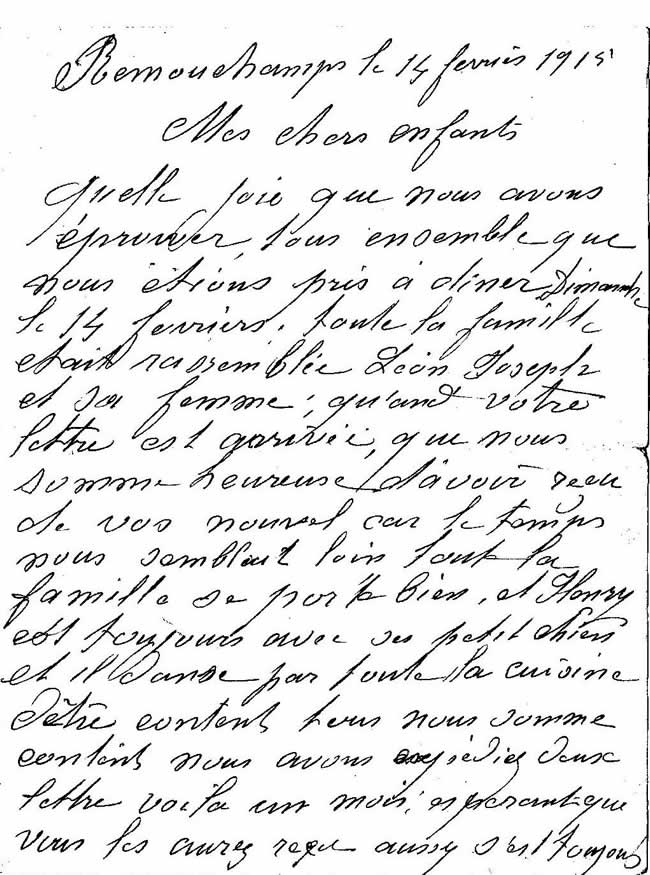 Remouchamps le 14 fevrier 1915
Mes chers enfants
quelle joie que nous avons
éprouver, tous ensemble que
nous étions pris à diner Dimanche
le 14 fevriers. toute la famille
etait rassemblée Léon Joseph
et sa femme, qu'and votre
lettre est arrivée, que nous
somme heureuse d'avoir reçu
de vos nouvel car le temps
nous semblait loin toute la
famille se porte bien, et Henry
est toujours avec ses petit chien
et il danse par toute la cuisine
d'être content tous nous somme
content nous avons expédiez deux
lettre voila un mois, esperant que
vous les aurez reçue aussy s'est toujours